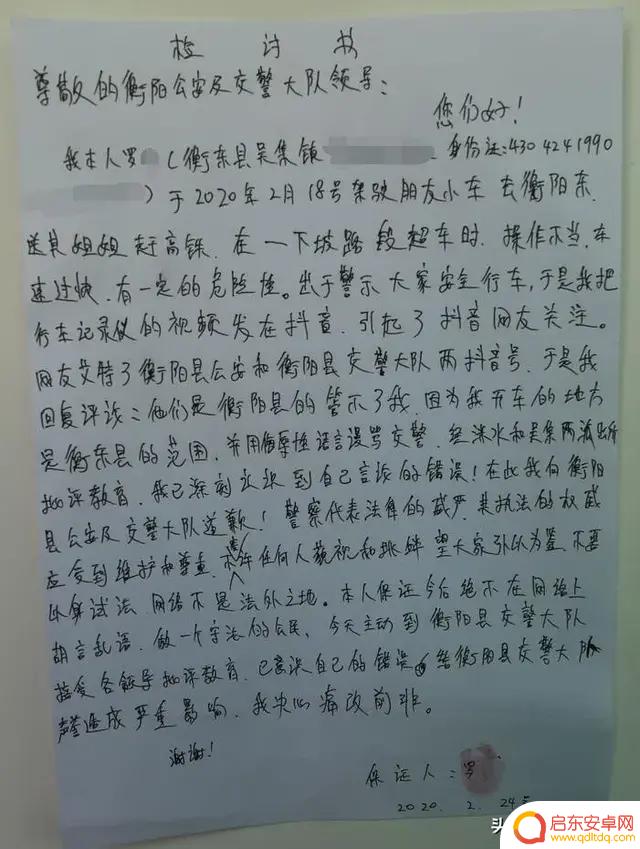 检讨书
尊敬的衡阳公安及交警大队领导：
您们好！
我本人罗（衡东县吴集镇 身份证：430 424 1990
）于2020年2月18号驾驶朋友小车去衡阳东
送其姐姐赶高铁，在一下坡路段超车时，操作不当，车
速过快，有一定的危险性。出于警示大家安全行车，于是我把
行车记录仪的视频发在抖音，引起了抖音网友关注。
网友艾特了衡阳县公安和衡阳县交警大队两抖音号，于是我
回复评论：他们是衡阳县的管不了我，因为我开车的地方
是衡东县的范围，并用侮辱性语言谩骂交警，经洣水和吴集两派出所
批评教育，我已深刻认识到自己言论的错误！在此我向衡阳
县公安及交警大队道歉！警察代表法律的威严，其执法的权威
应受到维护和尊重，不许任何人藐视和挑衅 望大家引以为鉴，不要
以身试法 网络不是法外之地。本人保证今后绝不在网络上
胡言乱语，做一个守法的公民，今天主动到衡阳县交警大队
接受各领导批评教育，已意识自己的错误，给衡阳县交警大队
声誉造成严重影响，我决心痛改前非。
谢谢！
保证人：罗
2020. 2. 24
头
启东安卓网
www.qdltdq.com